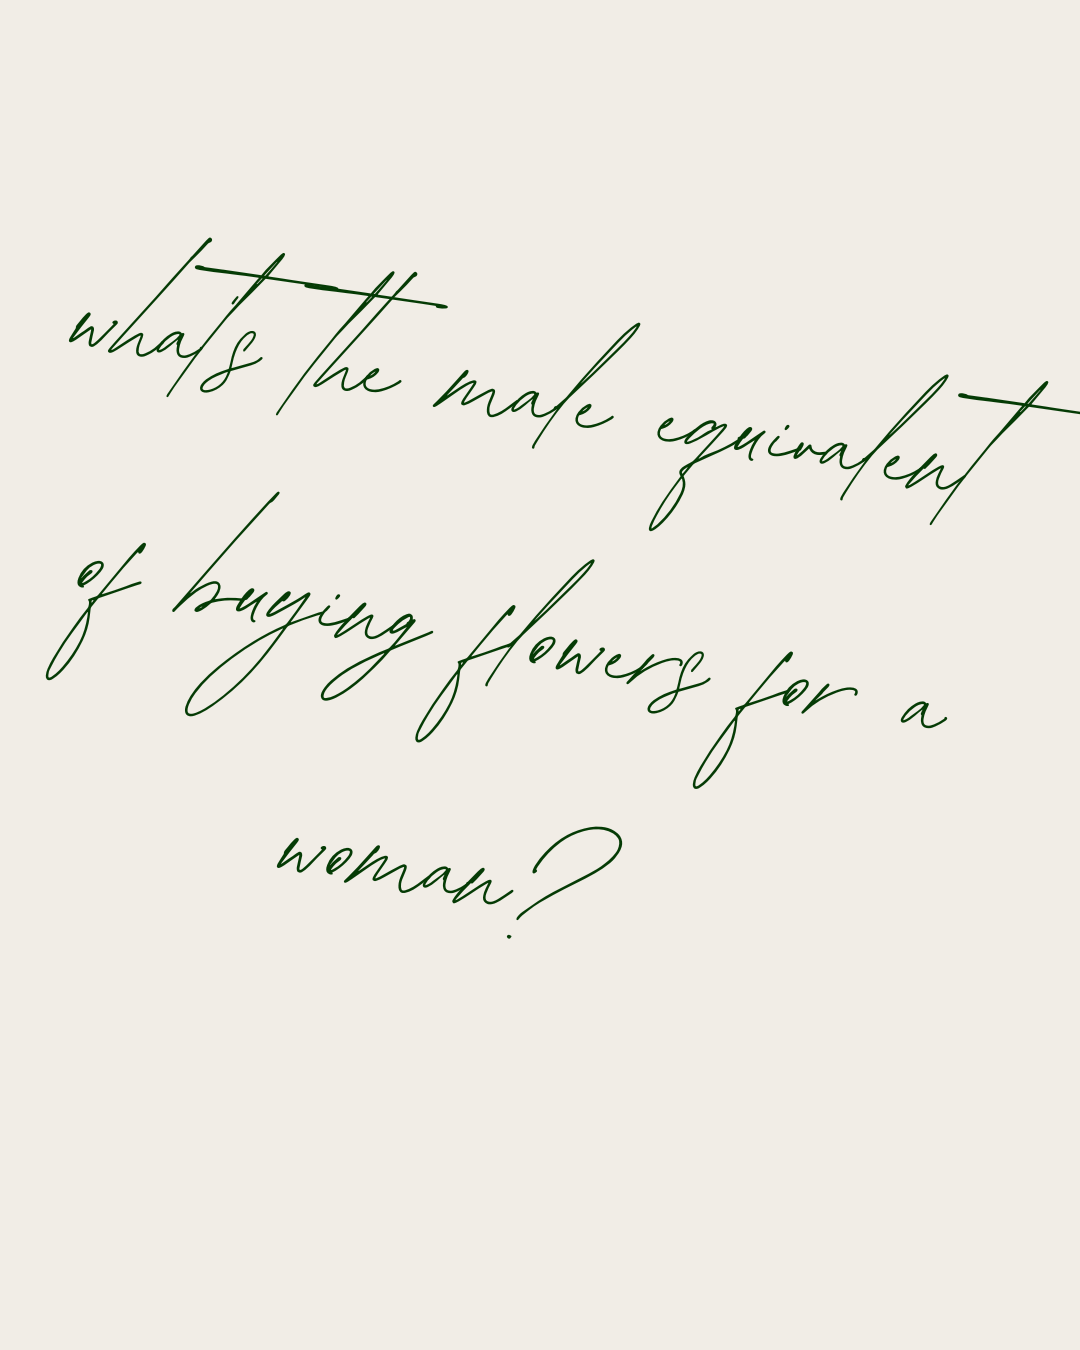 what's the male equivalent
of buying flowers for a
woman?